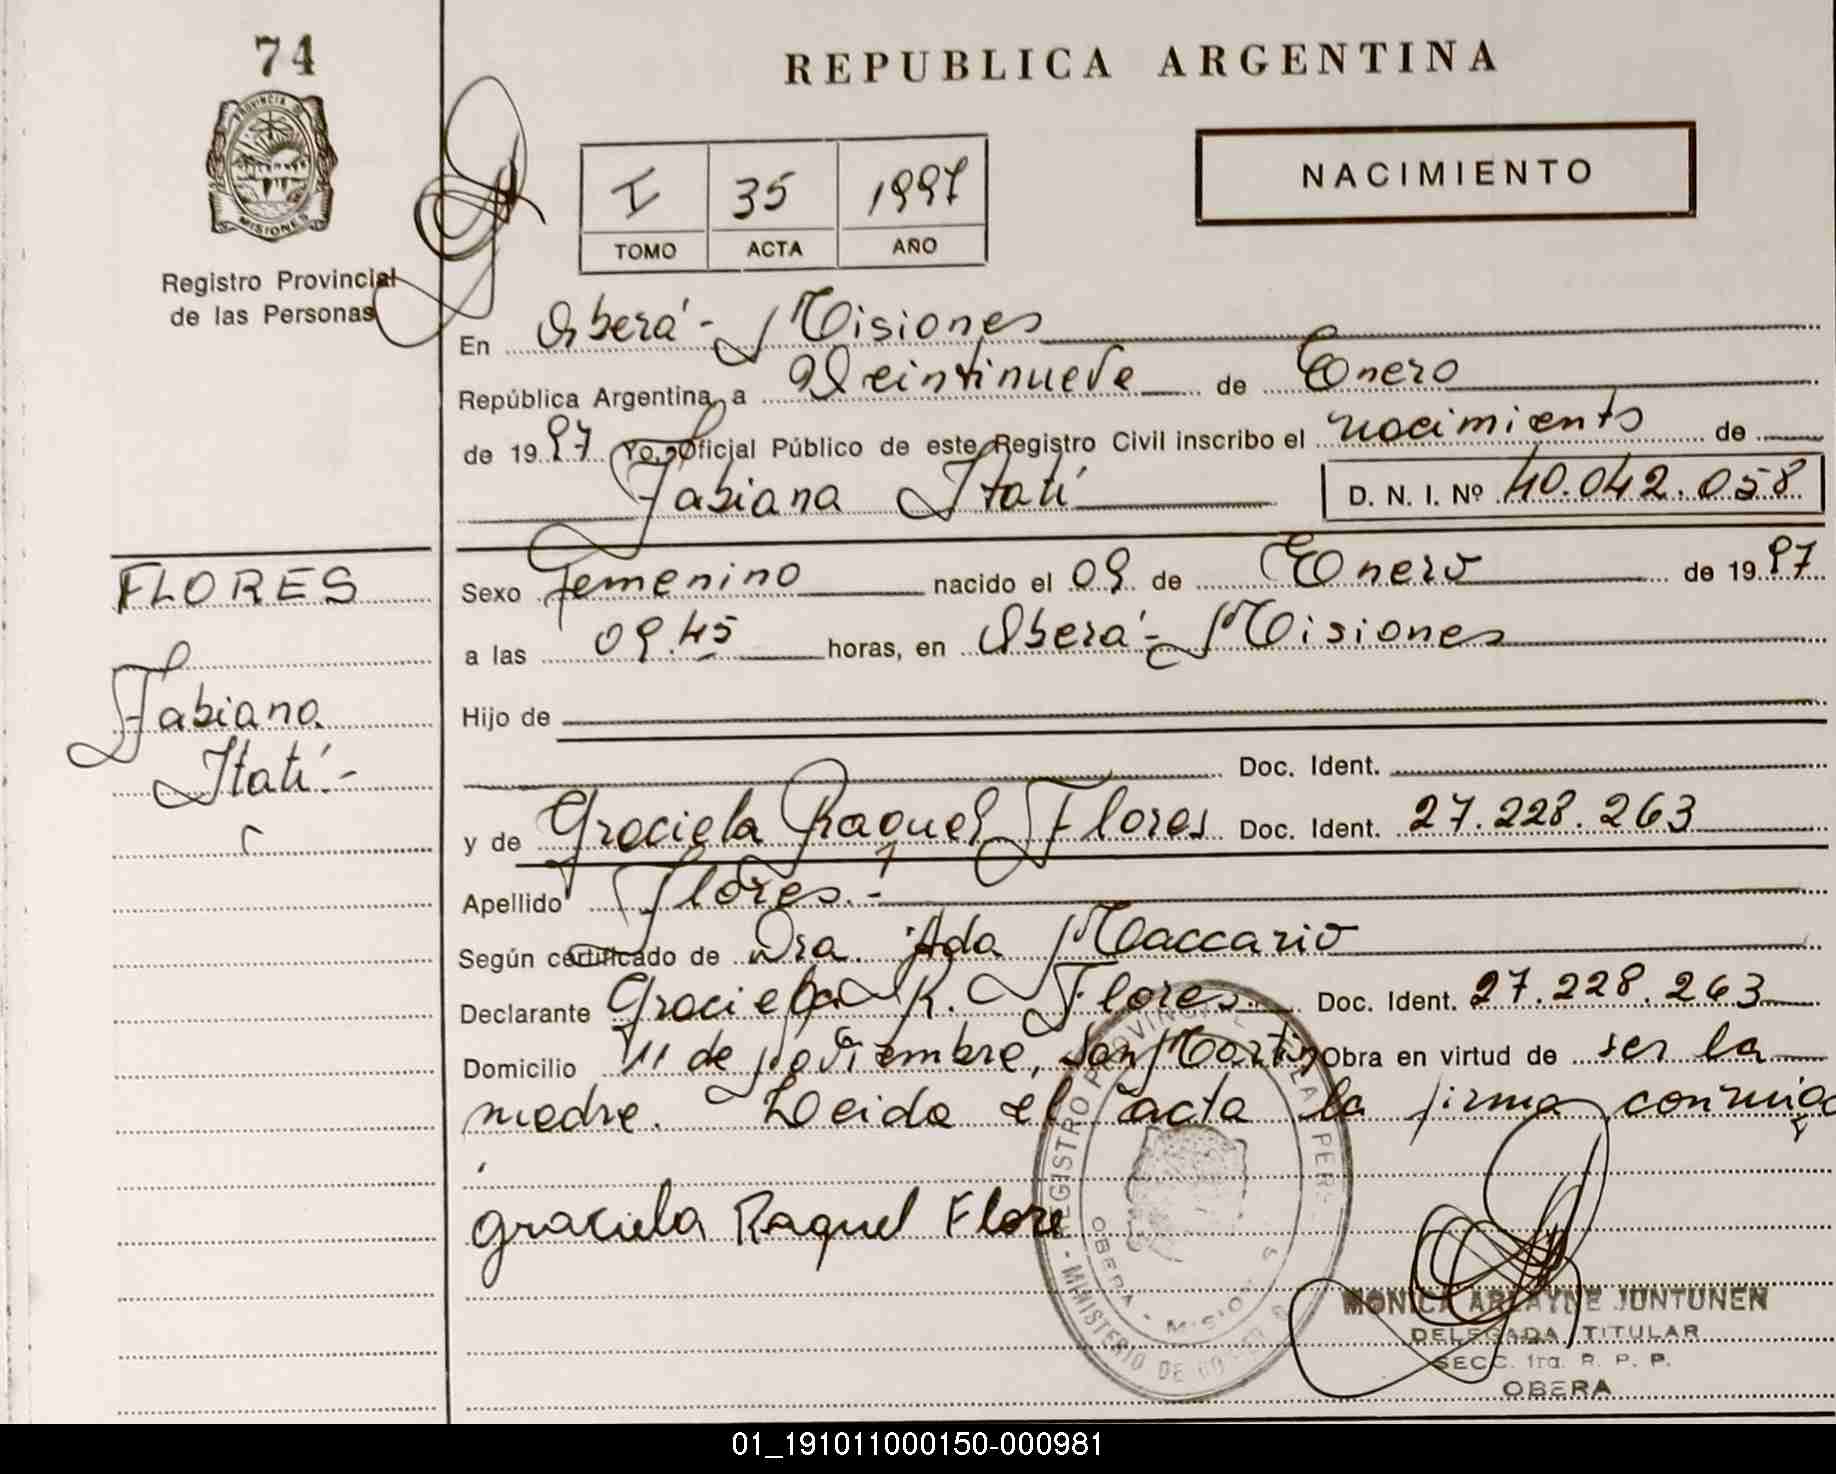 74
REPUBLICA ARGENTINA
PROVINCIA D
MISIONES
Registro Provincial
de las Personas
NACIMIENTO
I 35 1997
TOMO ACTA AÑO
En Oberá - Misiones
República Argentina, a Veintinueve de Enero
de 1997 Yo, Oficial Público de este Registro Civil inscribo el nacimiento de
Fabiana Itatí D. N. I. Nº 40.042.058
FLORES
Fabiana
Itatí.-
Sexo Femenino nacido el 09 de Enero de 1997
a las 09.45 horas, en Oberá - Misiones
Hijo de
Doc. Ident.
y de Graciela Raquel Flores Doc. Ident. 27.228.263
Apellido Flores.-
Según certificado de Dra. Ada Maccario
Declarante Graciela R. Flores Doc. Ident. 27.228.263
Domicilio 11 de Noviembre, San Martin Obra en virtud de ser la
madre. Leida el acta la firma conmigo
Graciela Raquel Flore
REGISTRO PROVINCIAL LA PER
OBERA - MISIONES
MINISTERIO DE GO
MONICA ARLAYNE JUNTUNEN
DELEGADA TITULAR
SECC. 1ra. R. P. P.
OBERA
01_191011000150-000981